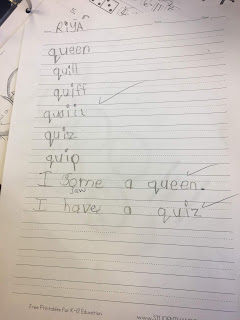 RiYA
queen
quill
quiff
quiz
quip
I some a queen.
saw
I have a quiz
Free Printables For K-12 Education